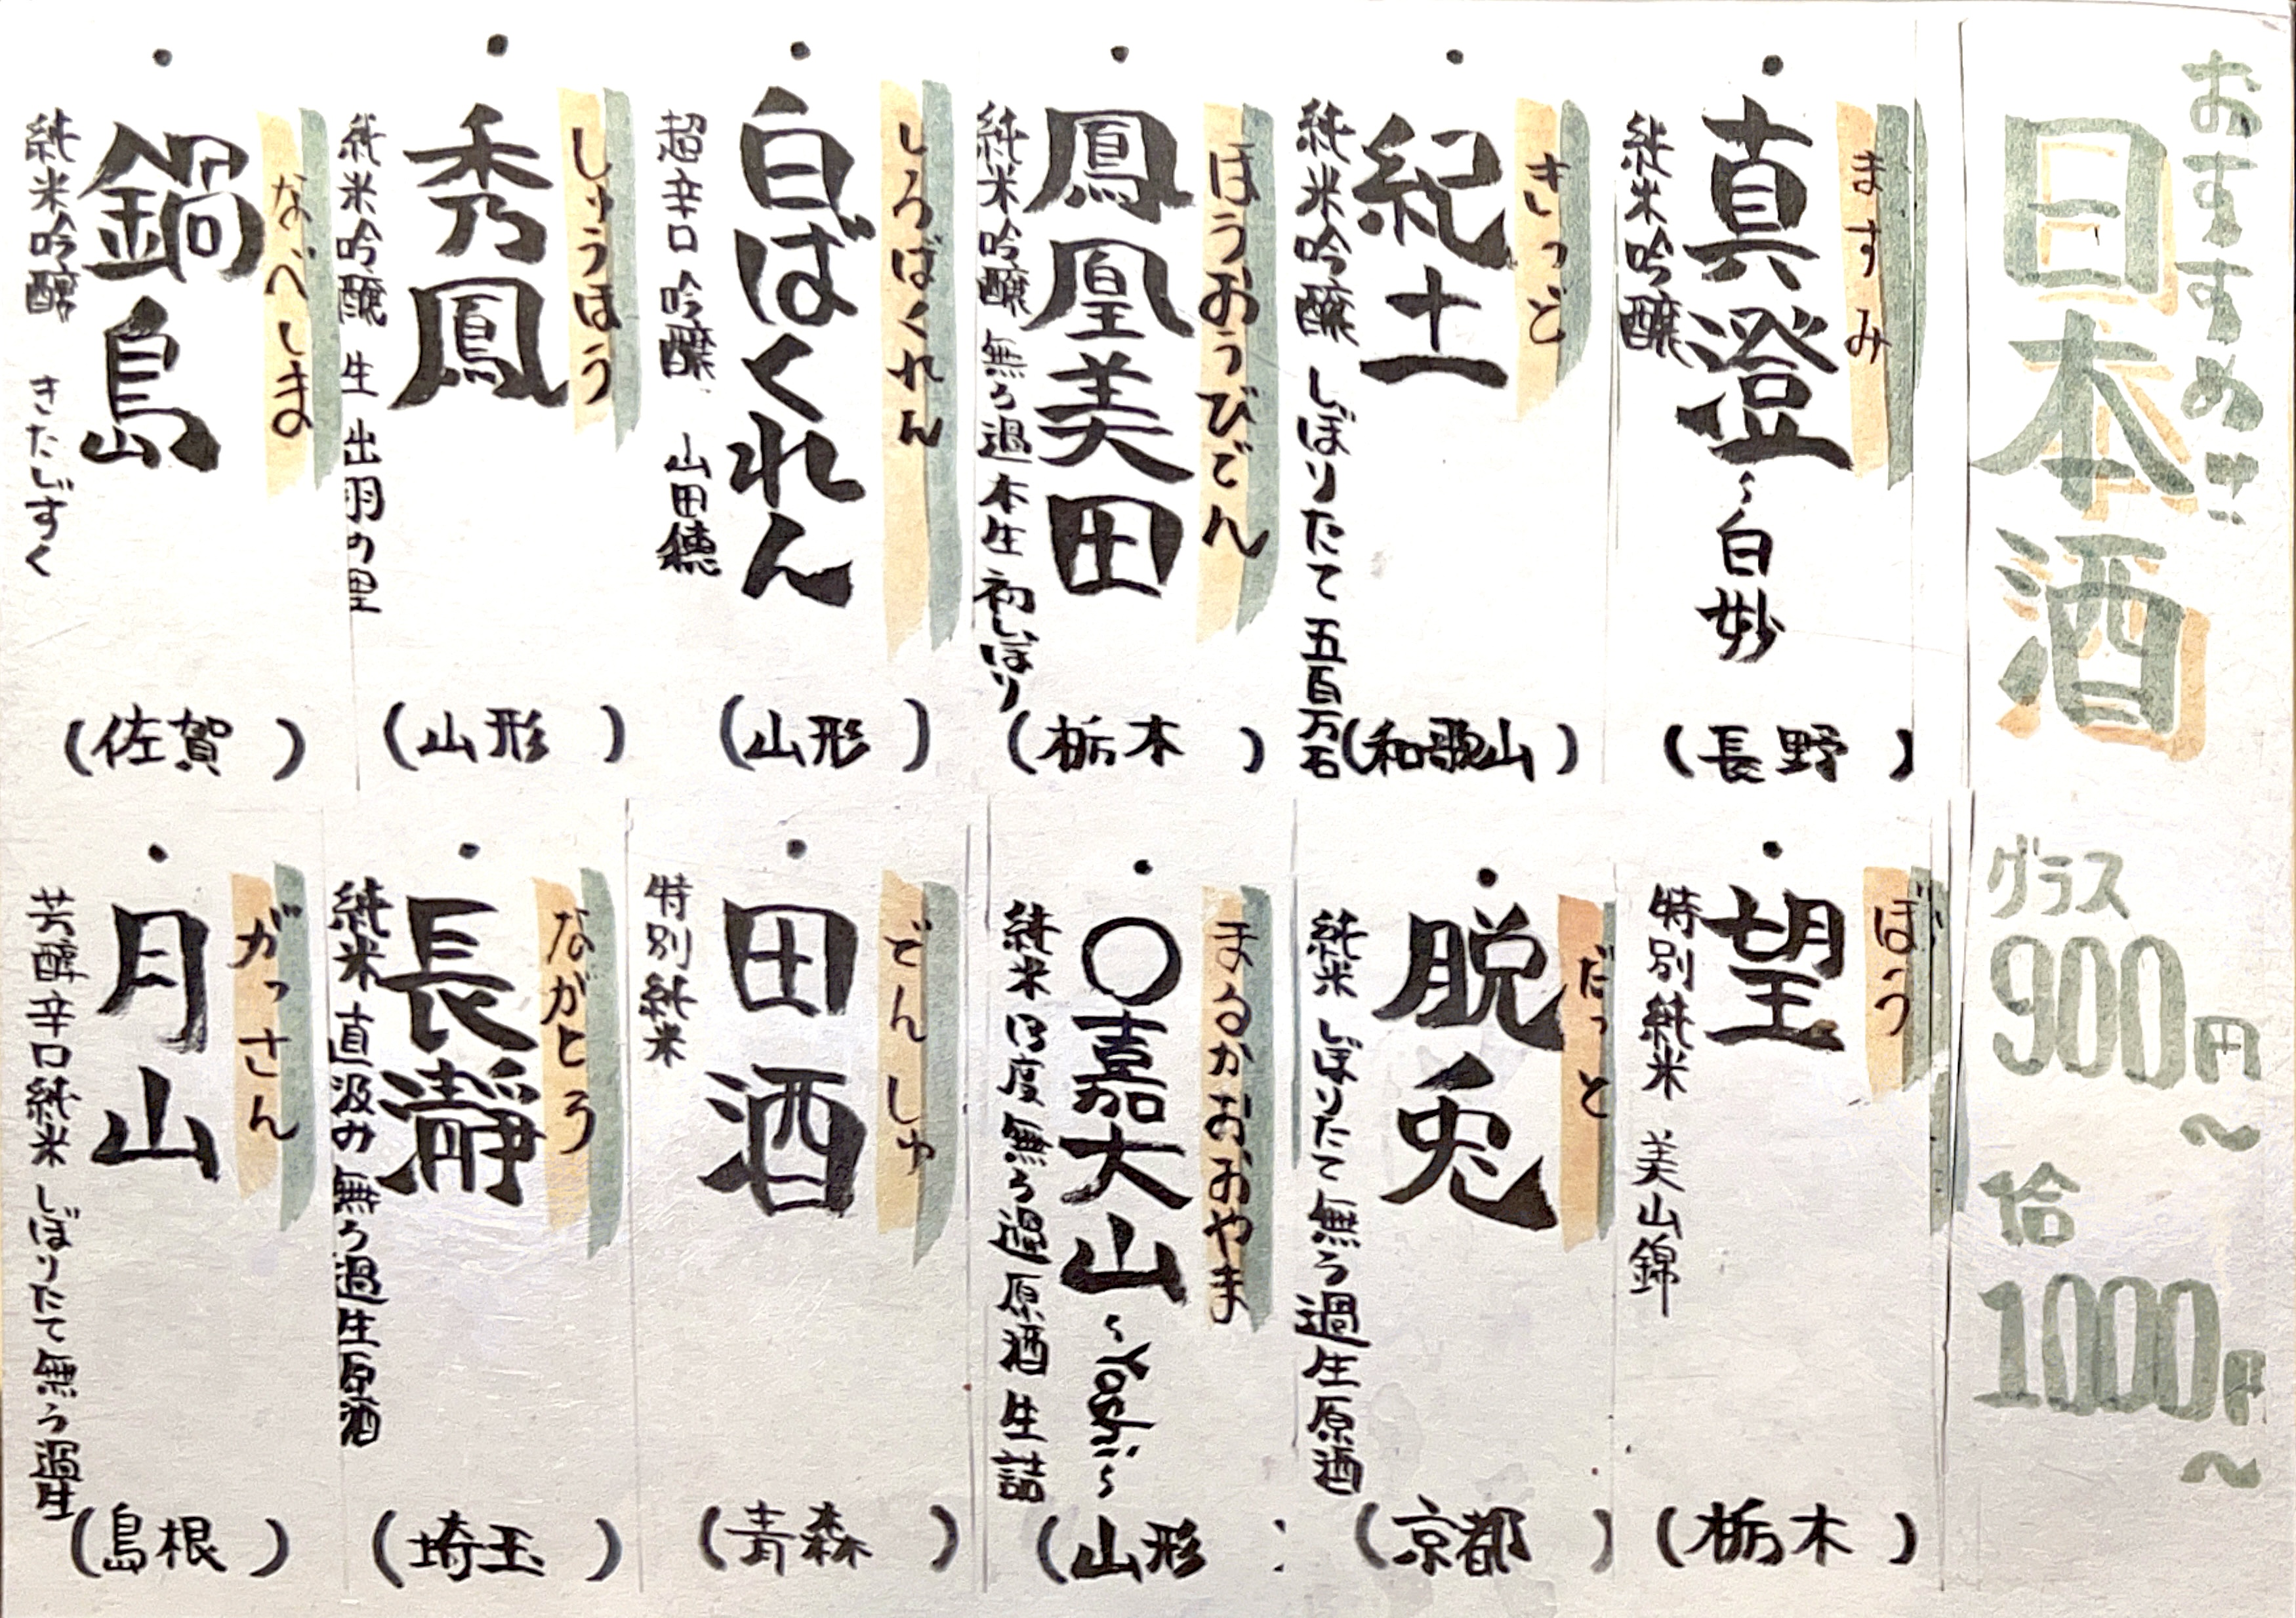 おすすめは
日本酒
グラス
900円~
合
1000円~
ますみ
真澄
~白妙
純米吟醸
(長野)
きっど
紀土
純米吟醸 しぼりたて 五百万石
(和歌山)
ほうおうびでん
鳳凰美田
純米吟醸 無ろ過本生 初しぼり
(栃木)
しろばくれん
白ばくれん
超辛口 吟醸 山田穂
(山形)
しゅうほう
秀鳳
純米吟醸 生 出羽の里
(山形)
なべしま
鍋島
純米吟醸 きたしずく
(佐賀)
ぼう
望
特別純米 美山錦
(栃木)
だっと
脱兎
純米 しぼりたて 無ろ過生原酒
(京都)
まるかおおやま
〇嘉大山
純米 13度 無ろ過原酒 生詰
(山形)
でんしゅ
田酒
特別純米
(青森)
ながとろ
長瀞
純米 直汲み 無ろ過生原酒
(埼玉)
がっさん
月山
芳醇辛口純米 しぼりたて 無ろ過生
(島根)